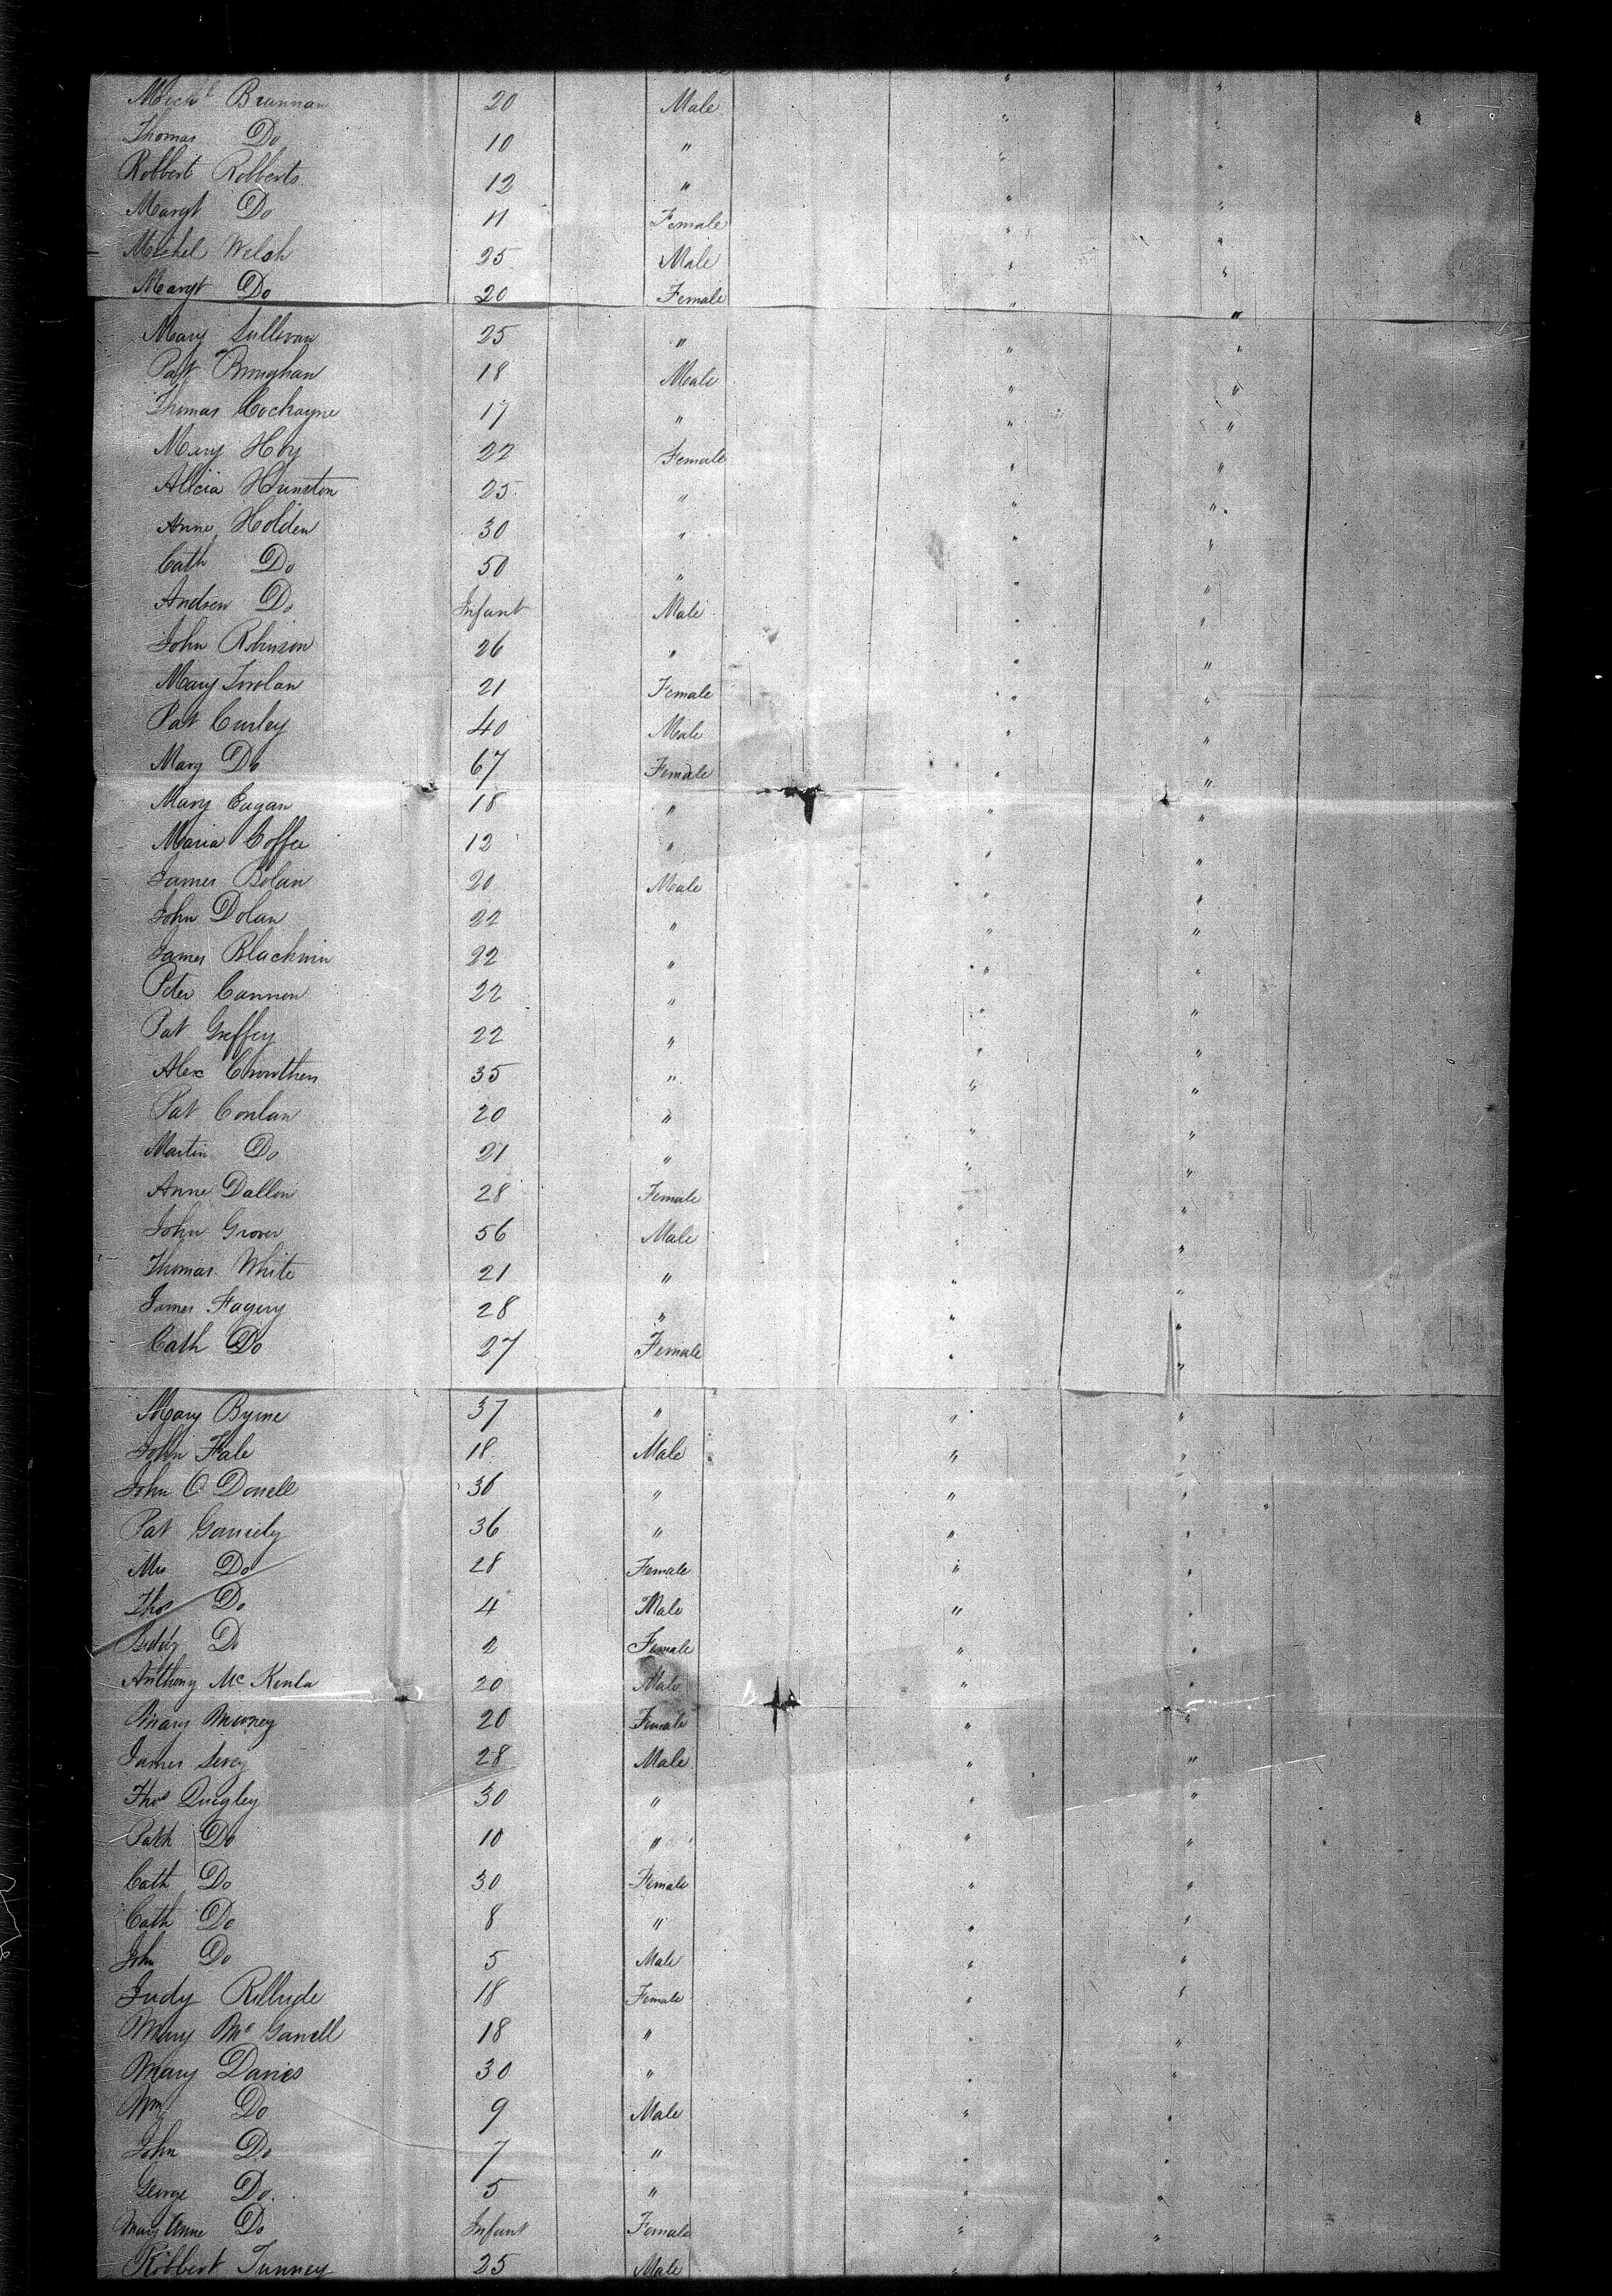 Mich'l Brannan 20 Male " "
Thomas Do 10 " " "
Robbert Robberts 12 " " "
Margt Do 11 Female " "
Michel Welsh 25 Male " "
Margt Do 20 Female " "
Mary Sullivan 25 " " "
Pat Broughan 18 Male " "
Thomas Cockayne 17 " " "
Mary Hoy 22 Female " "
Alicia Hunston 25 " " "
Anne Holden 30 " " "
Cath Do 50 " " "
Andrew Do Infant Male " "
John Robinson 26 " " "
Mary 21 Female " "
Pat Curley 40 Male " "
Mary Do 67 Female " "
Mary Eagan 18 " " "
Maria Coffee 12 " " "
James Bolan 20 Male " "
John Dolan 22 " " "
James 22 " " "
Peter Cannon 22 " " "
Pat Greffey 22 " " "
Alex Crowthers 35 " " "
Pat Conlan 20 " " "
Martin Do 21 " " "
Anne Dallon 28 Female " "
John Grover 56 Male " "
Thomas White 21 " " "
James Fagery 28 " " "
Cath Do 27 Female " "
Mary Byrne 37 " " "
John Fale 18 Male " "
John O Donell 36 " " "
Pat 36 " " "
Mrs Do 28 Female " "
Thos Do 4 Male " "
Biddy Do 2 Female " "
Anthony Mc Kenla 20 Male " "
Mary Murney 20 Female " "
James 28 Male " "
Thos Quigley 30 " " "
Patk Do 10 " " "
Cath Do 30 Female " "
Cath Do 8 " " "
John Do 5 Male " "
Judy 18 Female " "
Mary Mc Garrell 18 " " "
Mary Davies 30 " " "
Wm Do 9 Male " "
John Do 7 " " "
George Do 5 " " "
Mary Anne Do Infant Female " "
Robbert Tunney 25 Male "